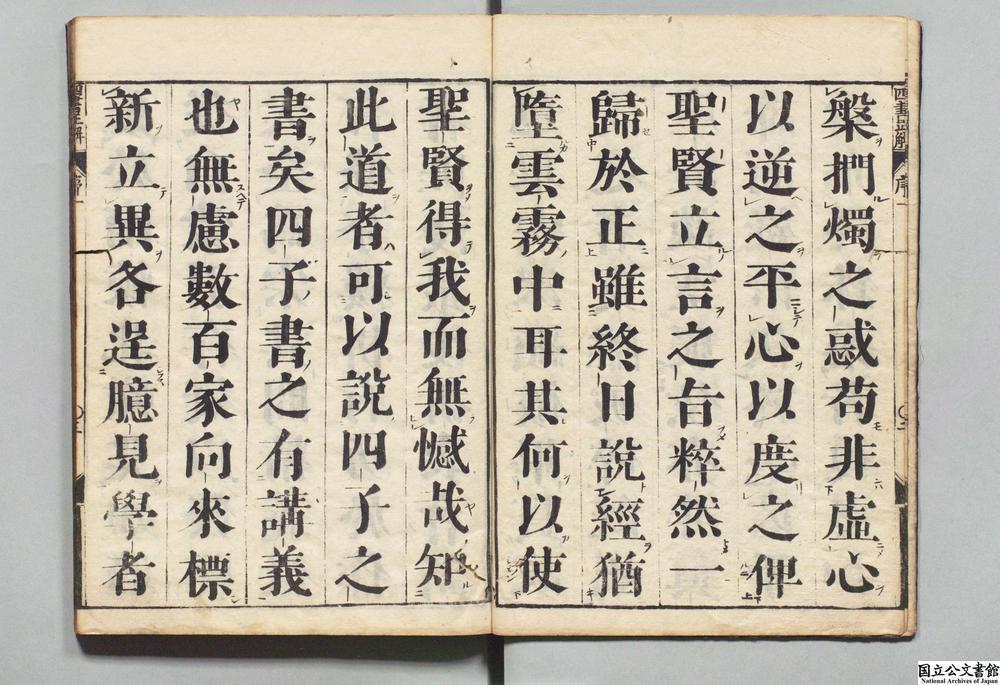 槃捫燭之惑苟非虛心
以逆之平心以度之俾
聖賢立言之旨粹然一
歸於正雖終日說經猶
墮雲霧中耳其何以使
聖賢得我而無憾哉知
此道者可以說四子之
書矣四子書之有講義
也無慮數百家向來標
新立異各逞臆見學者
四書正解
序
国立公文書館
National Archives of Japan